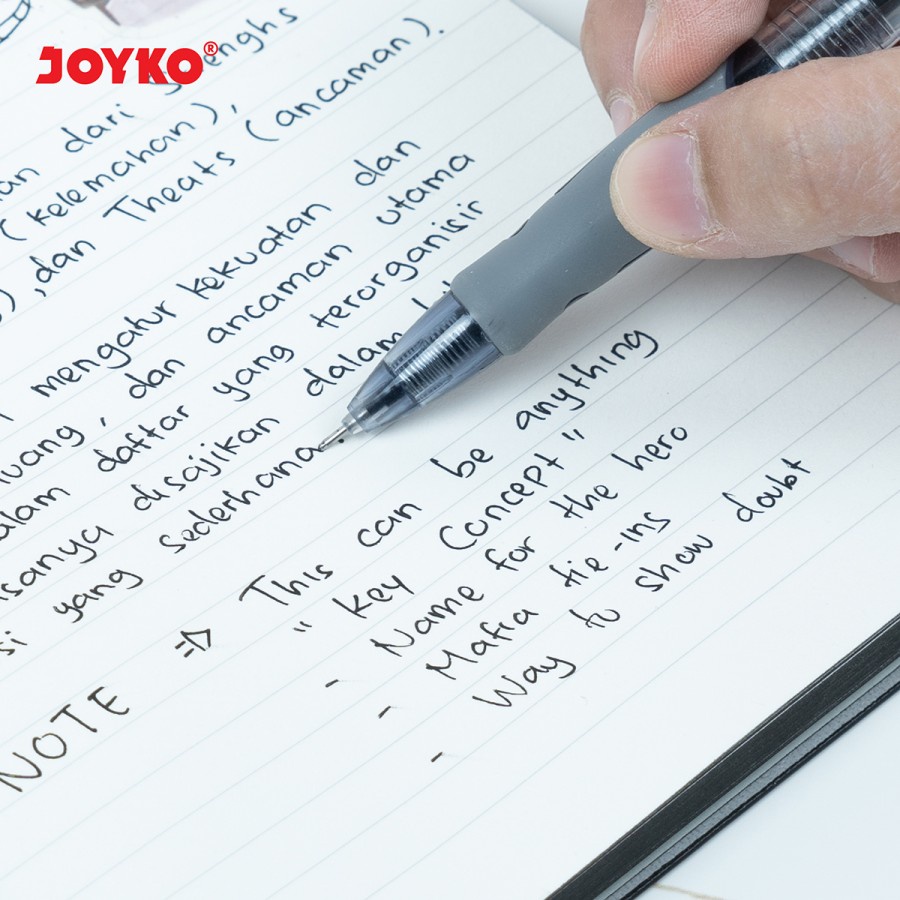 JOYKO®
dari
(kelemahan),
,dan Theats (ancaman).
mengatur kekuatan dan
, dan ancaman utama
daftar yang terorganisir
disajikan dalam
yang sederhana
NOTE => This can be anything
" key Concept "
- Name for the hero
- Mafia tie-ins
- Way to show doubt